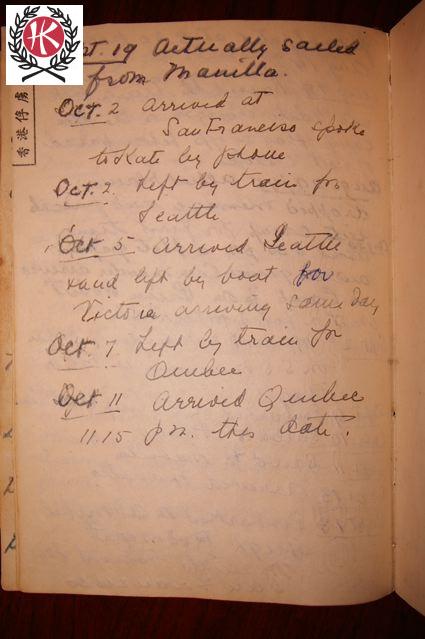 HK
香港俘虜
t. 19 Actually sailed
from Manilla.
Oct. 2 arrived at
San Francisco spoke
to Kate by phone
Oct. 2 Left by train for
Seattle
Oct 5 Arrived Seattle
and left by boat for
Victoria arriving same day
Oct. 7 Left by train for
Quebec
Oct 11 Arrived Quebec
11.15 pm. this date.